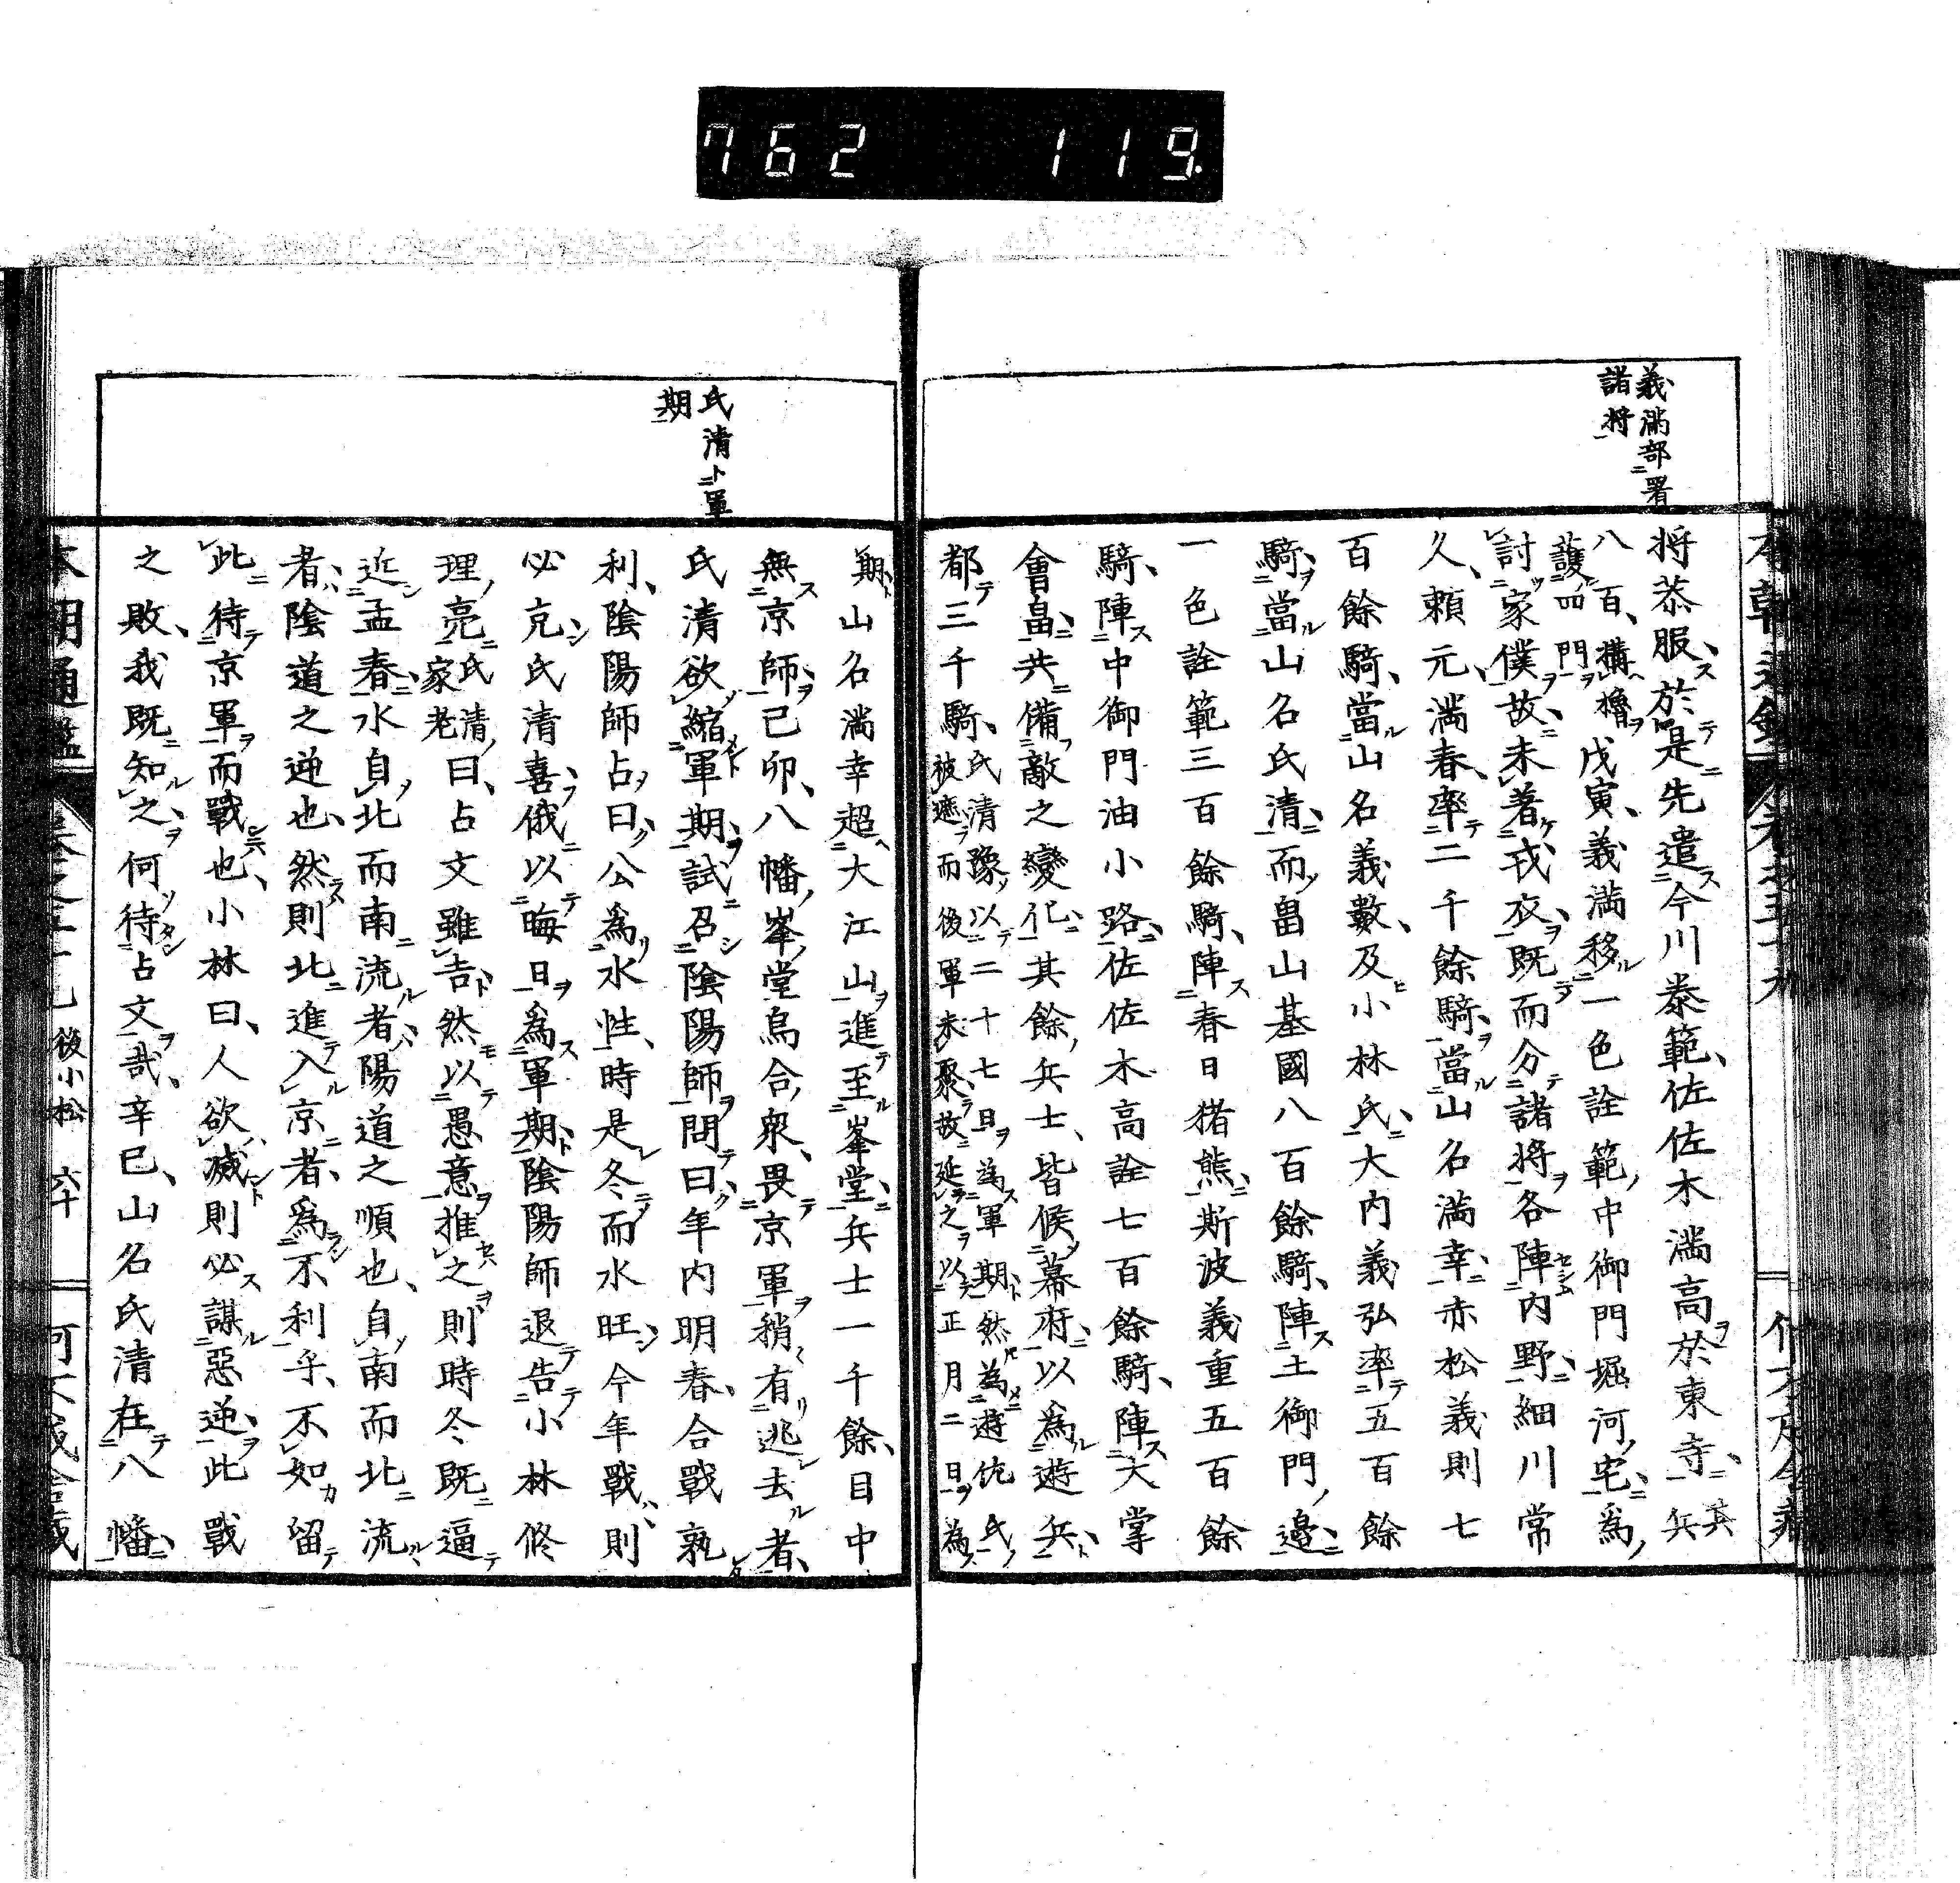 762 119
義滿部署
諸將
將恭服、於是先遣今川泰範、佐佐木滿高於東寺、其兵
八百、構櫓護四門戊寅、義滿移一色詮範中御門堀河宅、爲
討家僕故、未著戎衣、既而分諸將各陣內野、細川常
久、賴元、滿春、率二千餘騎、當山名滿幸、赤松義則七
百餘騎、當山名義數、及小林氏、大內義弘率五百餘
騎、當山名氏清、而畠山基國八百餘騎、陣土御門邊、
一色詮範三百餘騎、陣春日猪熊、斯波義重五百餘
騎、陣中御門油小路、佐佐木高詮七百餘騎、陣大掌
會畠、共備敵之變化、其餘兵士、皆候幕府、以爲遊兵、
都三千騎、氏清豫以二十七日為軍期、然為遊佐氏被遮而後軍未聚、故延之以正月二日為
期、山名滿幸超大江山進至峯堂、兵士一千餘、目中
無京師、己卯、八幡峯堂烏合衆、畏京軍稍有逃去者、
氏清卜軍
期
氏清欲縮軍期、試召陰陽師問曰、年內明春、合戰孰
利、陰陽師占曰、公爲水性、時是冬而水旺、今年戰、則
必克、氏清喜、俄以晦日爲軍期、陰陽師退告小林修
理亮、氏清家老曰、占文雖吉、然以愚意推之、則時冬既逼
近孟春、水自北而南流者、陽道之順也、自南而北流
者、陰道之逆也、然則北進入京者、爲不利乎、不如留
此待京軍而戰也、小林曰、人欲滅則必謀惡逆、此戰
之敗、我既知之、何待占文哉、辛巳、山名氏清在八幡、
本朝通鑑 後小松 六十